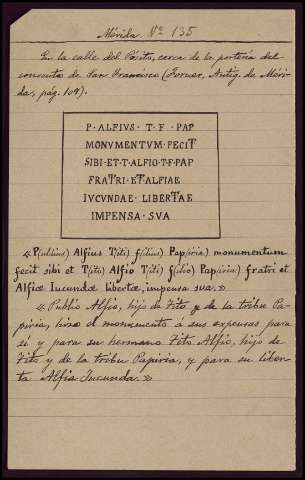 Mérida. Nº 135
En la calle del Pósito, cerca de la portería del
convento de San Francisco (Forner, Antig. de Méri-
da, pág. 109).
P · ALFIVS · T · F · PAP
MONVMENTVM · FECIT
SIBI · ET · T · ALFIO · T · F · PAP
FRATRI · ET · ALFIAE
IVCVNDAE · LIBERTAE
IMPENSA · SVA
«P(ublius) Alfius T(iti) f(ilius) Pap(iria) monumentum
fecit sibi et T(ito) Alfio T(iti) f(ilio) Pap(iria) fratri et
Alfiæ Iucundæ libertæ, impensa sua.»
«Publio Alfio, hijo de Tito y de la tribu Pa-
piria, hizo el monumento á sus expensas para
sí y para su hermano Tito Alfio, hijo de
Tito y de la tribu Papiria, y para su liber-
ta Alfia Iucunda.»